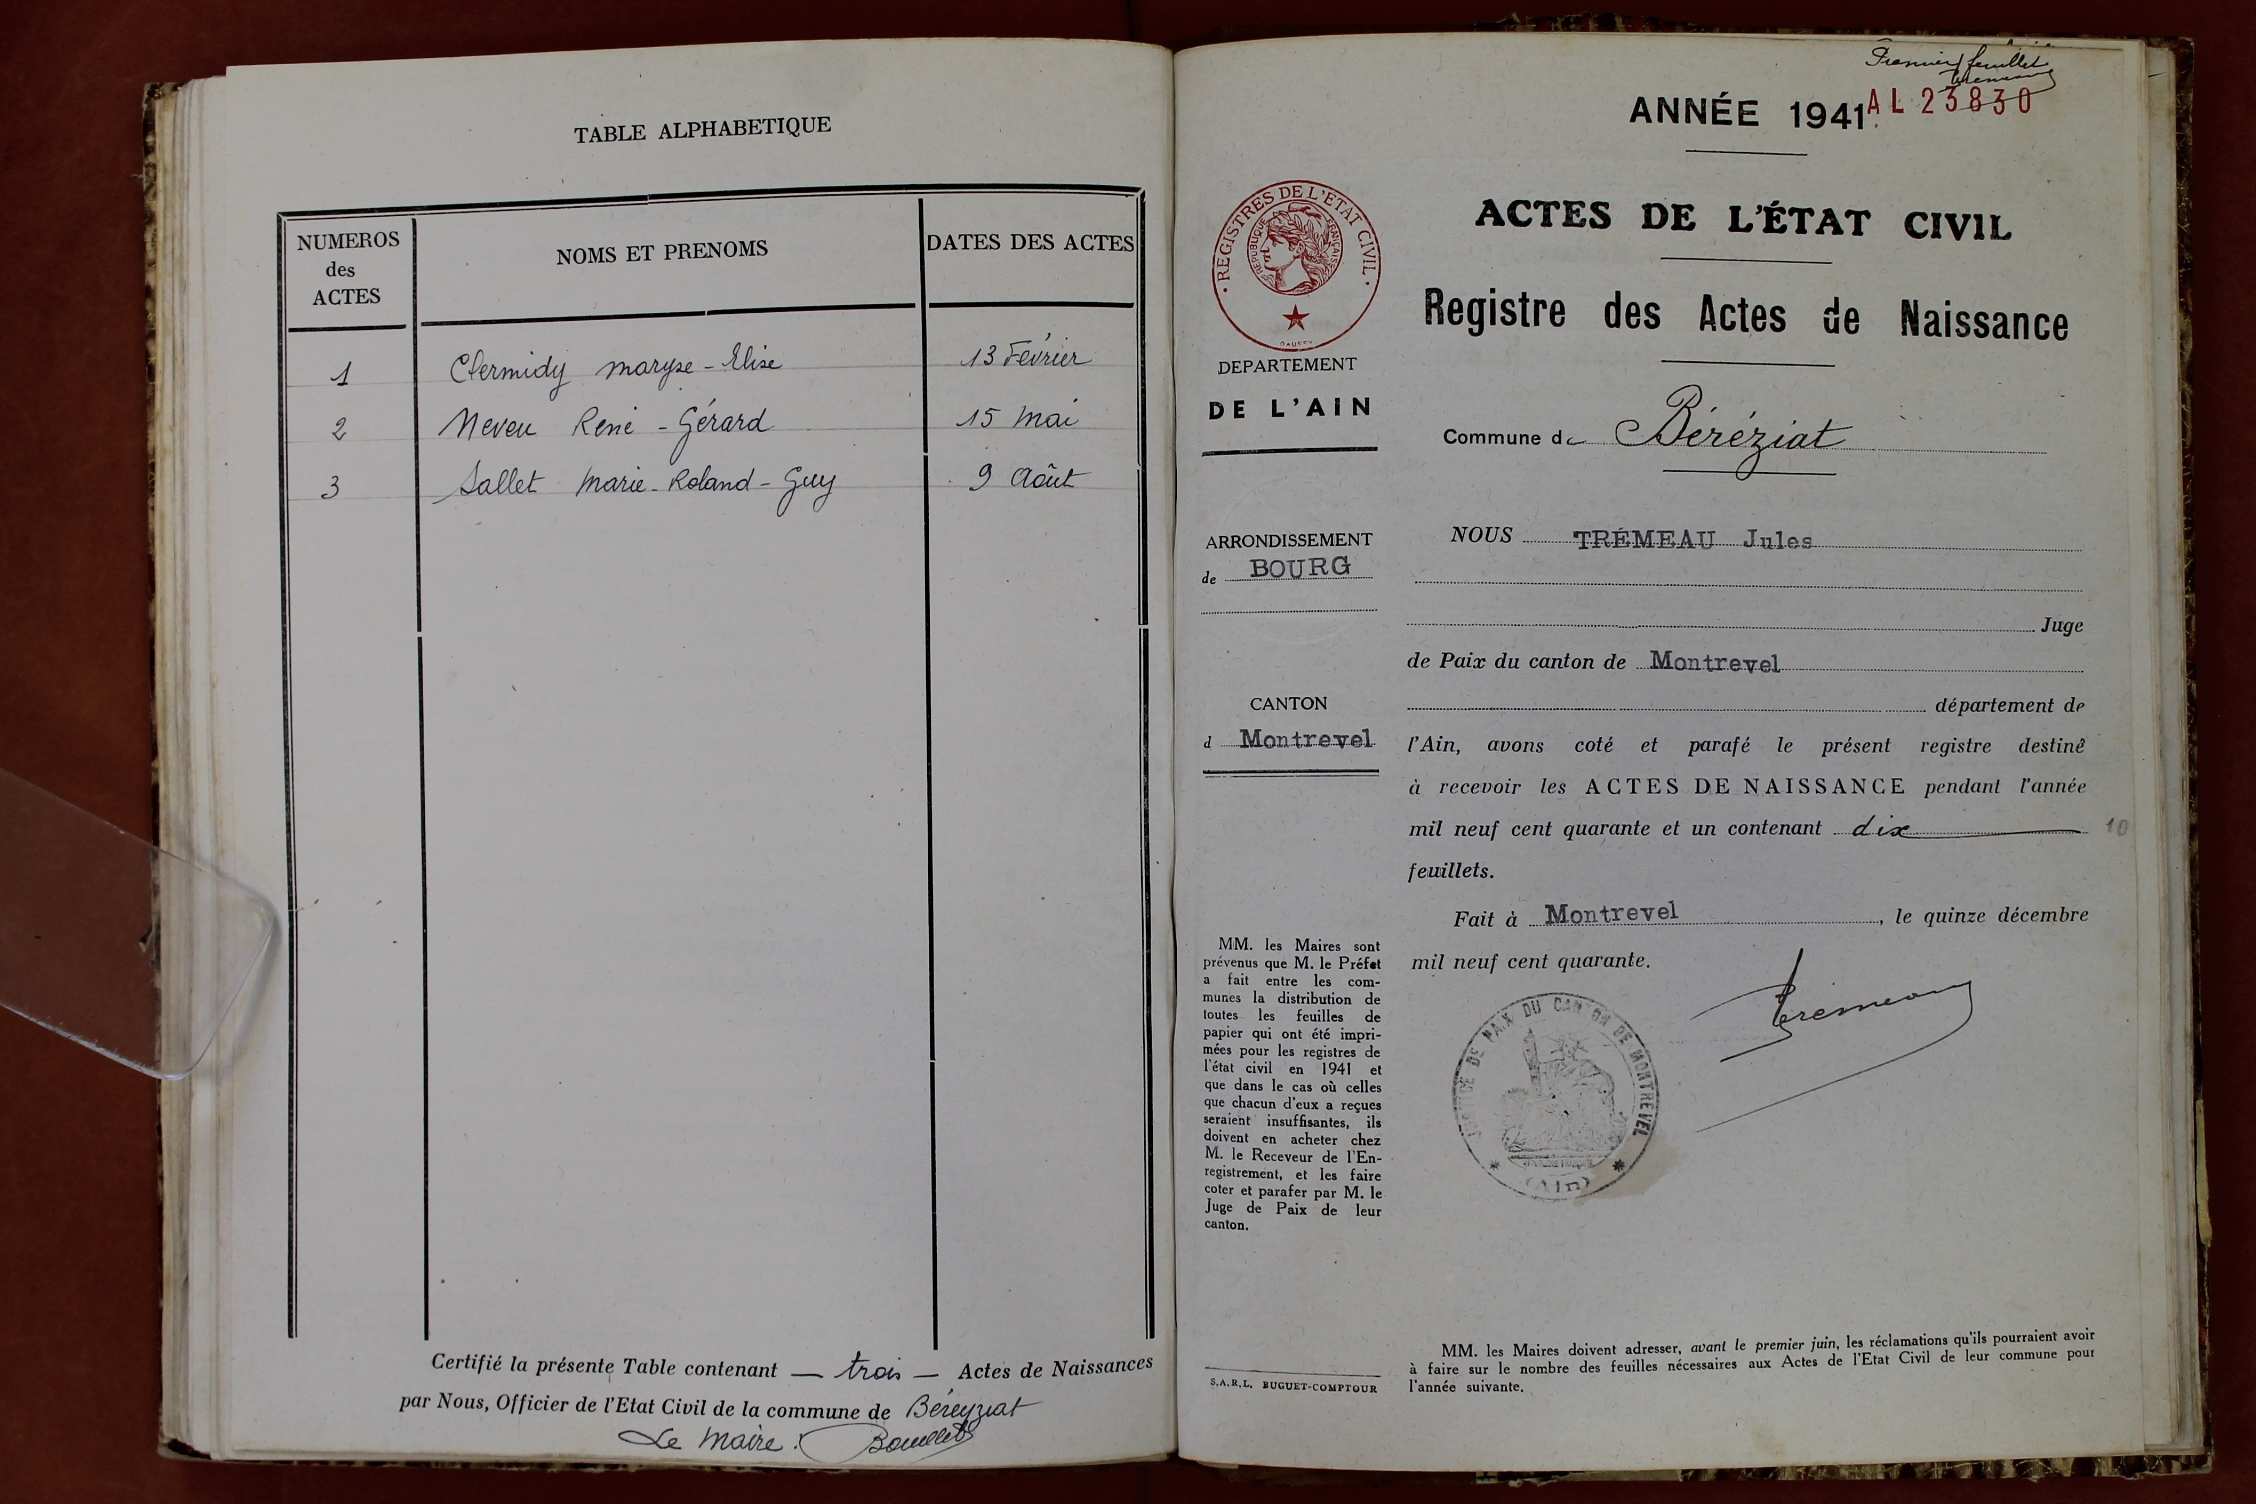 TABLE ALPHABETIQUE
NUMEROS
des
ACTES
NOMS ET PRENOMS
DATES DES ACTES
1 Clermidy Maryse - Elise 13 Février
2 Neveu René - Gérard 15 Mai
3 Sallet Marie - Roland - Guy 9 Août
Certifié la présente Table contenant — trois — Actes de Naissances
par Nous, Officier de l'Etat Civil de la commune de Béreyziat
Le Maire : Bouillet
Premier feuillet
Trémeau
ANNÉE 1941
AL 23830
ACTES DE L'ÉTAT CIVIL
Registre des Actes de Naissance
Commune de Béréziat
· REGISTRES DE L'ETAT CIVIL ·
REPUBLIQUE FRANÇAISE
DEPARTEMENT
DE L'AIN
ARRONDISSEMENT
de BOURG
CANTON
d Montrevel
MM. les Maires sont
prévenus que M. le Préfet
a fait entre les com-
munes la distribution de
toutes les feuilles de
papier qui ont été impri-
mées pour les registres de
l'état civil en 1941 et
que dans le cas où celles
que chacun d'eux a reçues
seraient insuffisantes, ils
doivent en acheter chez
M. le Receveur de l'En-
registrement, et les faire
coter et parafer par M. le
Juge de Paix de leur
canton.
S.A.R.L. BUGUET-COMPTOUR
NOUS TRÉMEAU Jules
Juge
de Paix du canton de Montrevel
département de
l'Ain, avons coté et parafé le présent registre destiné
à recevoir les ACTES DE NAISSANCE pendant l'année
mil neuf cent quarante et un contenant dix 10
feuillets.
Fait à Montrevel, le quinze décembre
mil neuf cent quarante.
Trémeau
JUSTICE DE PAIX DU CANTON DE MONTREVEL
(Ain)
MM. les Maires doivent adresser, avant le premier juin, les réclamations qu'ils pourraient avoir
à faire sur le nombre des feuilles nécessaires aux Actes de l'Etat Civil de leur commune pour
l'année suivante.